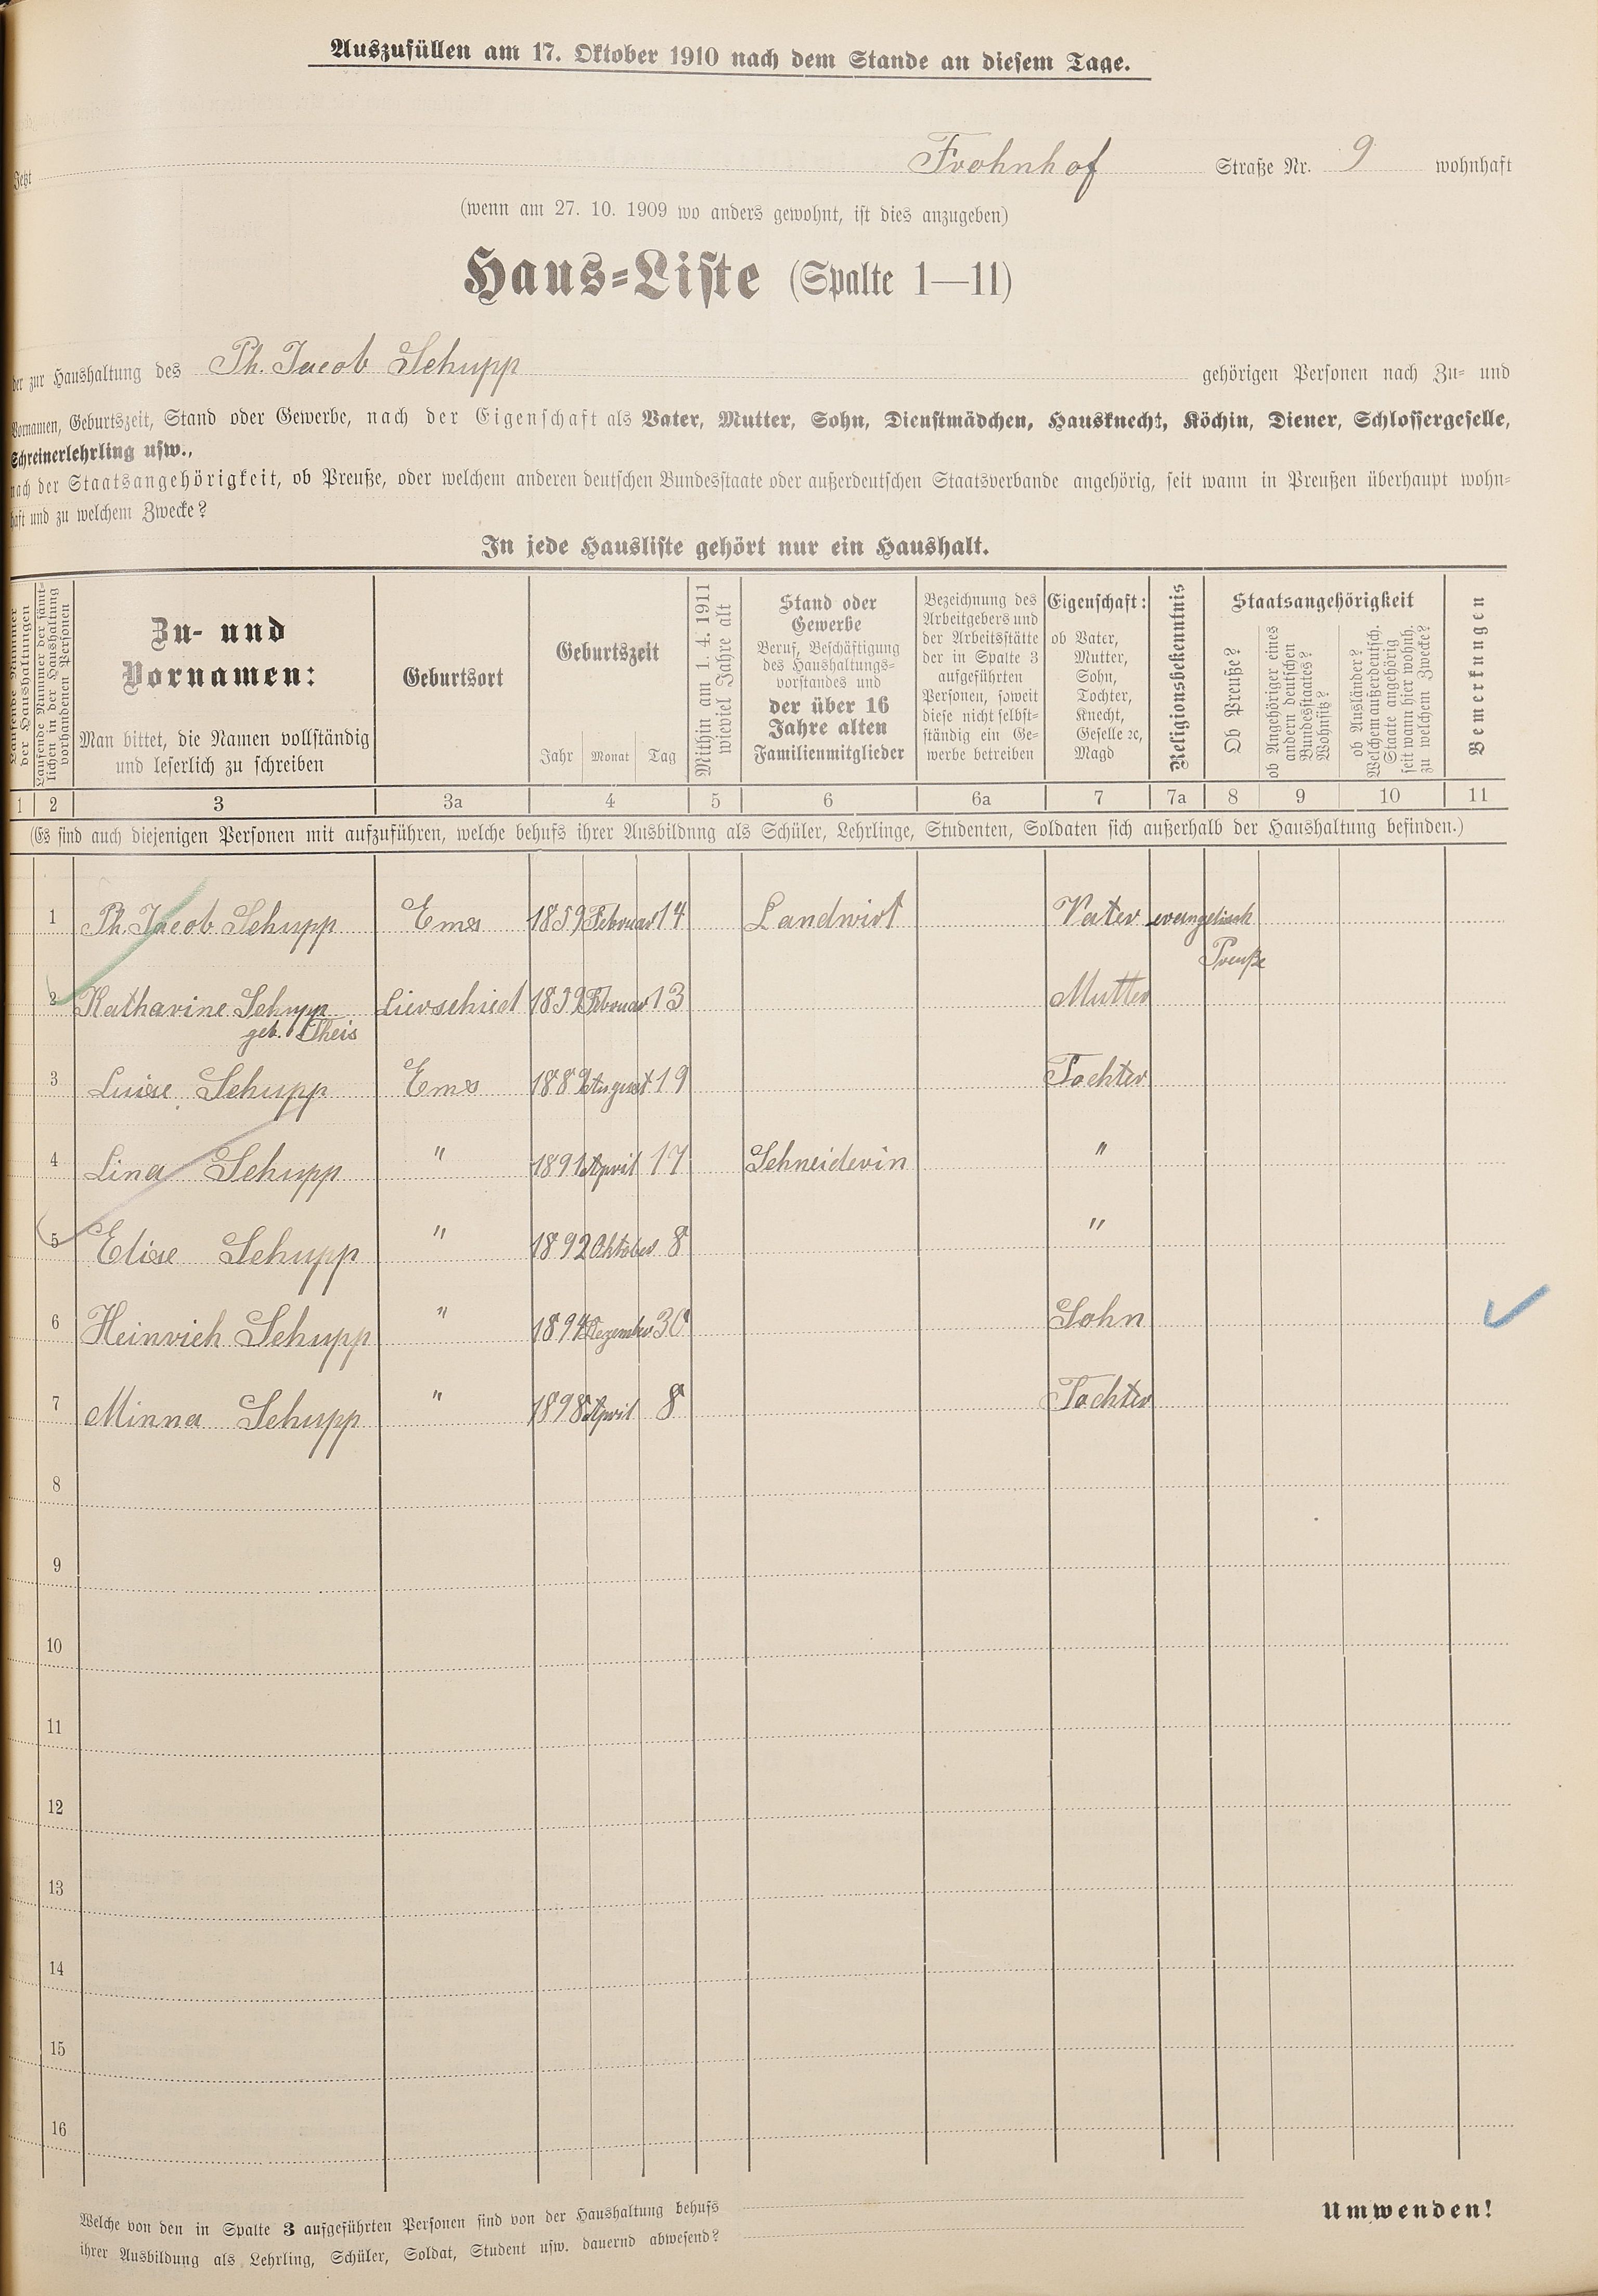 Auszufüllen am 17. Oktober 1910 nach dem Stande an diesem Tage.
Jetzt Frohnhof Straße Nr. 9 wohnhaft
(wenn am 27. 10. 1909 wo anders gewohnt, ist dies anzugeben)
Haus-Liste (Spalte 1—11)
der zur Haushaltung des Ph. Jacob Schupp gehörigen Personen nach Zu- und
Vornamen, Geburtszeit, Stand oder Gewerbe, nach der Eigenschaft als Vater, Mutter, Sohn, Dienstmädchen, Hausknecht, Köchin, Diener, Schlossergeselle,
Schreinerlehrling usw.,
nach der Staatsangehörigkeit, ob Preuße, oder welchem anderen deutschen Bundesstaate oder außerdeutschen Staatsverbande angehörig, seit wann in Preußen überhaupt wohn-
haft und zu welchem Zwecke?
In jede Hausliste gehört nur ein Haushalt.
Laufende Nummer
der Haushaltungen
Laufende Nummer der sämt-
lichen in der Haushaltung
vorhandenen Personen
Zu- und
Vornamen:
Man bittet, die Namen vollständig
und leserlich zu schreiben
Geburtsort
Geburtszeit
Jahr Monat Tag
Mithin am 1. 4. 1911
wieviel Jahre alt
Stand oder
Gewerbe
Beruf, Beschäftigung
des Haushaltungs-
vorstandes und
der über 16
Jahre alten
Familienmitglieder
Bezeichnung des
Arbeitgebers und
der Arbeitsstätte
der in Spalte 3
aufgeführten
Personen, soweit
diese nicht selbst-
ständig ein Ge-
werbe betreiben
Eigenschaft:
ob Vater,
Mutter,
Sohn,
Tochter,
Knecht,
Geselle ꝛc,
Magd
Religionsbekenntnis
Staatsangehörigkeit
Ob Preuße?
ob Angehöriger eines
andern deutschen
Bundesstaates?
Wohnsitz?
ob Ausländer?
Welchem außerdeutsch.
Staate angehörig
seit wann hier wohnh.
zu welchem Zwecke?
Bemerkungen
1 2 3 3a 4 5 6 6a 7 7a 8 9 10 11
(Es sind auch diejenigen Personen mit aufzuführen, welche behufs ihrer Ausbildung als Schüler, Lehrlinge, Studenten, Soldaten sich außerhalb der Haushaltung befinden.)
1 Ph. Jacob Schupp Ems 1859 Februar 14 Landwirt Vater evangelisch
Preuße
2 Katharine Schupp Lierschied 1859 Februar 13 Mutter
geb. Theis
3 Luise Schupp Ems 1889 August 19 Tochter
4 Lina Schupp " 1891 April 17 Schneiderin "
5 Elise Schupp " 1892 Oktober 8 "
6 Heinrich Schupp " 1894 Dezember 30 Sohn
7 Minna Schupp " 1898 April 8 Tochter
8
9
10
11
12
13
14
15
16
Welche von den in Spalte 3 aufgeführten Personen sind von der Haushaltung behufs
ihrer Ausbildung als Lehrling, Schüler, Soldat, Student usw. dauernd abwesend?
Umwenden!